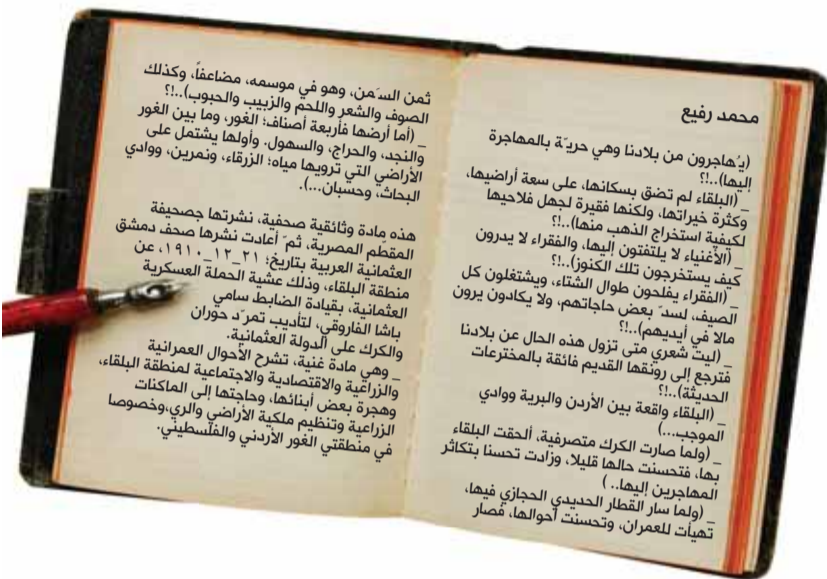 محمد رفيع
(يُهاجرون من بلادنا وهي حريّة بالمهاجرة
إليها)..!؟
_ (البلقاء لم تضق بسكانها، على سعة أراضيها،
وكثرة خيراتها، ولكنها فقيرة لجهل فلاحيها
لكيفية استخراج الذهب منها)..!؟
_ (الأغنياء لا يلتفتون إليها، والفقراء لا يدرون
كيف يستخرجون تلك الكنوز)..!؟
_ (الفقراء يفلحون طوال الشتاء، ويشتغلون كل
الصيف، لسدّ بعض حاجاتهم، ولا يكادون يرون
مالا في أيديهم)..!؟
_ (ليت شعري متى تزول هذه الحال عن بلادنا
فترجع إلى رونقها القديم فائقة بالمخترعات
الحديثة)..!؟
_ (البلقاء واقعة بين الأردن والبرية ووادي
الموجب...)
_ (ولما صارت الكرك متصرفية، ألحقت البلقاء
بها، فتحسنت حالها قليلا، وزادت تحسنا بتكاثر
المهاجرين إليها.. )
_ (ولما سار القطار الحديدي الحجازي فيها،
تهيأت للعمران، وتحسنت أحوالها، فصار
ثمن السَمن، وهو في موسمه، مضاعفاً، وكذلك
الصوف والشعر واللحم والزبيب والحبوب)..!؟
_ (أما أرضها فأربعة أصناف؛ الغور، وما بين الغور
والنجد، والحراج، والسهول. وأولها يشتمل على
الأراضي التي ترويها مياه؛ الزرقاء، ونمرين، ووادي
البحاث، وحسبان...).
هذه مادة وثائقية صحفية، نشرتها جصحيفة
المقطّم المصرية، ثمّ أعادت نشرها صحف دمشق
العثمانية العربية بتاريخ؛ ٢١_١٢_١٩١٠، عن
منطقة البلقاء، وذلك عشية الحملة العسكرية
العثمانية، بقيادة الضابط سامي
باشا الفاروقي، لتأديب تمرّد حوران
والكرك على الدولة العثمانية.
_ وهي مادة غنية، تشرح الأحوال العمرانية
والزراعية والاقتصادية والاجتماعية لمنطقة البلقاء،
وهجرة بعض أبنائها، وحاجتها إلى الماكنات
الزراعية وتنظيم ملكية الأراضي والري،وخصوصا
في منطقتي الغور الأردني والفلسطيني.